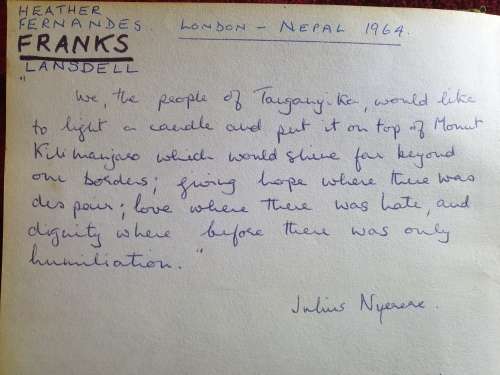 HEATHER
FERNANDES. LONDON - NEPAL 1964.
FRANKS
LANSDELL
"
We, the people of Tanganyika, would like
to light a candle and put it on top of Mount
Kilimanjaro which would shine far beyond
our borders; giving hope where there was
despair; love where there was hate, and
dignity where before there was only
humiliation."
Julius Nyerere.